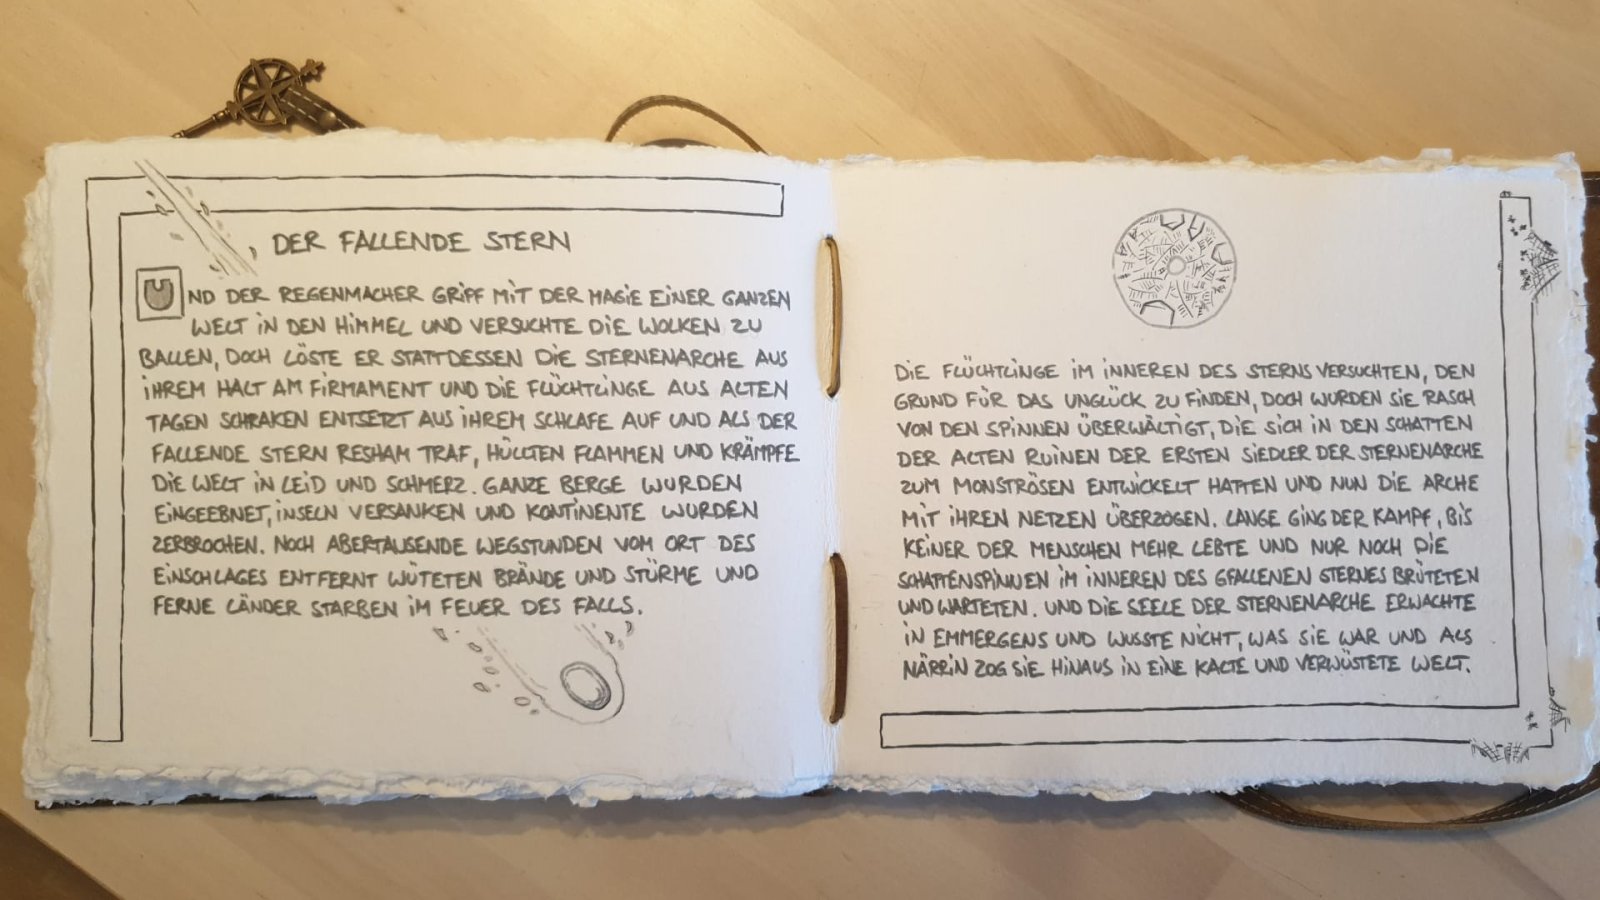 DER FALLENDE STERN
UND DER REGENMACHER GRIFF MIT DER MAGIE EINER GANZEN
WELT IN DEN HIMMEL UND VERSUCHTE DIE WOLKEN ZU
BALLEN, DOCH LÖSTE ER STATTDESSEN DIE STERNENARCHE AUS
IHREM HALT AM FIRMAMENT UND DIE FLÜCHTLINGE AUS ALTEN
TAGEN SCHRAKEN ENTSETZT AUS IHREM SCHLAFE AUF UND ALS DER
FALLENDE STERN RESHAM TRAF, HÜLLTEN FLAMMEN UND KRÄMPFE
DIE WELT IN LEID UND SCHMERZ. GANZE BERGE WURDEN
EINGEEBNET, INSELN VERSANKEN UND KONTINENTE WURDEN
ZERBROCHEN. NOCH ABERTAUSENDE WEGSTUNDEN VOM ORT DES
EINSCHLAGES ENTFERNT WÜTETEN BRÄNDE UND STÜRME UND
FERNE LÄNDER STARBEN IM FEUER DES FALLS.
DIE FLÜCHTLINGE IM INNEREN DES STERNS VERSUCHTEN, DEN
GRUND FÜR DAS UNGLÜCK ZU FINDEN, DOCH WURDEN SIE RASCH
VON DEN SPINNEN ÜBERWÄLTIGT, DIE SICH IN DEN SCHATTEN
DER ALTEN RUINEN DER ERSTEN SIEDLER DER STERNENARCHE
ZUM MONSTRÖSEN ENTWICKELT HATTEN UND NUN DIE ARCHE
MIT IHREN NETZEN ÜBERZOGEN. LANGE GING DER KAMPF, BIS
KEINER DER MENSCHEN MEHR LEBTE UND NUR NOCH DIE
SCHATTENSPINNEN IM INNEREN DES GFALLENEN STERNES BRÜTETEN
UND WARTETEN. UND DIE SEELE DER STERNENARCHE ERWACHTE
IN EMMERGENS UND WUSSTE NICHT, WAS SIE WAR UND ALS
NÄRRIN ZOG SIE HINAUS IN EINE KALTE UND VERWÜSTETE WELT.